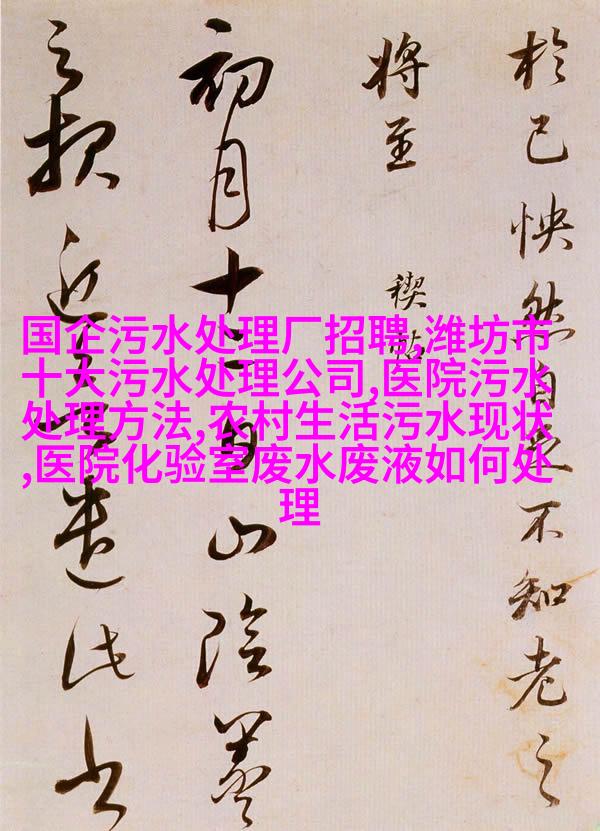 国企污水处理厂招聘,潍坊市
十大污水处理公司,医院污水
处理方法,农村生活污水现状
,医院化验室废水废液如何处
理
於己怏然自足不知老之
将至
禊帖
初月十二日山陰羲
之報近遣此书